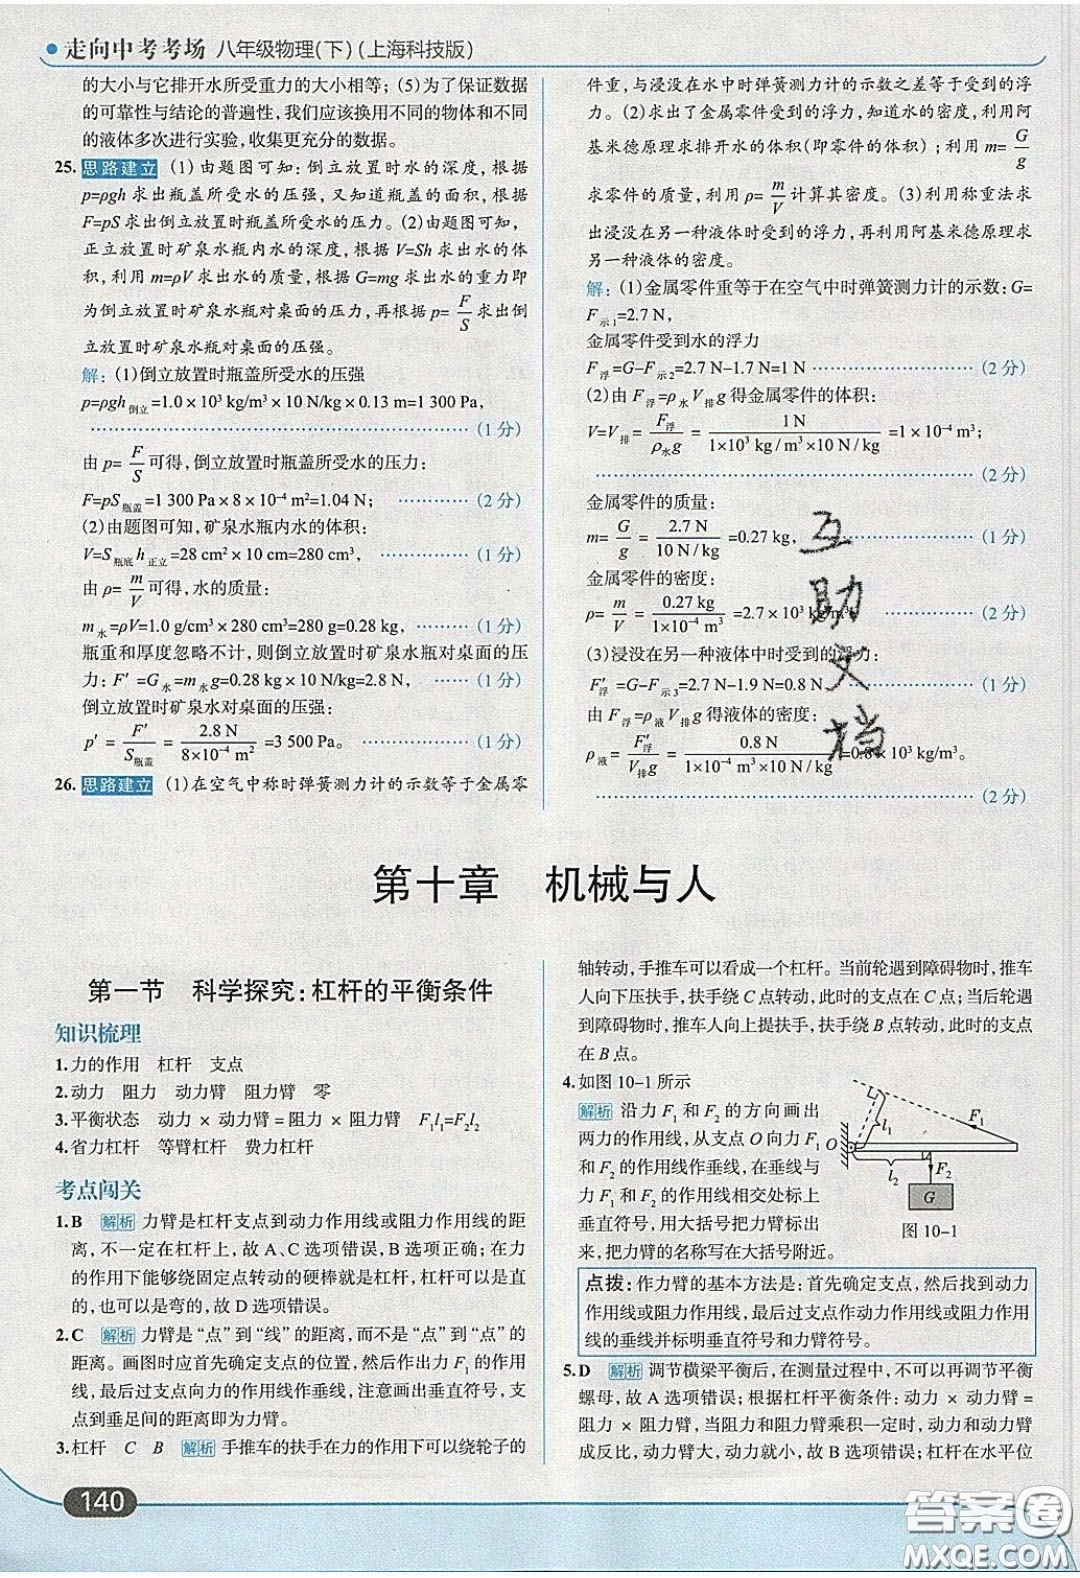 走向中考考场 八年级物理(下)(上海科技版)
的大小与它排开水所受重力的大小相等；(5)为了保证数据
的可靠性与结论的普遍性，我们应该换用不同的物体和不同
的液体多次进行实验，收集更充分的数据。
25. 思路建立 (1)由题图可知：倒立放置时水的深度，根据
p=ρgh 求出瓶盖所受水的压强，又知道瓶盖的面积，根据
F=pS 求出倒立放置时瓶盖所受水的压力。(2)由题图可知，
正立放置时矿泉水瓶内水的深度，根据 V=Sh 求出水的体
积，利用 m=ρV 求出水的质量，根据 G=mg 求出水的重力即
为倒立放置时矿泉水瓶对桌面的压力，再根据 p= F/S 求出倒
立放置时矿泉水瓶对桌面的压强。
解：(1)倒立放置时瓶盖所受水的压强
p=ρgh倒立=1.0 × 10³ kg/m³ × 10 N/kg × 0.13 m=1 300 Pa，
(1 分)
由 p= F/S 可得，倒立放置时瓶盖所受水的压力：
F=pS瓶盖=1 300 Pa × 8 × 10⁻⁴ m²=1.04 N； (2 分)
(2)由题图可知，矿泉水瓶内水的体积：
V=S瓶底h正立=28 cm² × 10 cm=280 cm³， (1 分)
由 ρ= m/V 可得，水的质量：
m水=ρV=1.0 g/cm³ × 280 cm³=280 g=0.28 kg， (1 分)
瓶重和厚度忽略不计，则倒立放置时矿泉水瓶对桌面的压
力：F′=G水=m水g=0.28 kg × 10 N/kg=2.8 N， (1 分)
倒立放置时矿泉水对桌面的压强：
p′= F′/S瓶盖 = 2.8 N/8×10⁻⁴ m² =3 500 Pa。 (1 分)
26. 思路建立 (1)在空气中称时弹簧测力计的示数等于金属零
件重，与浸没在水中时弹簧测力计的示数之差等于受到的浮
力。(2)求出了金属零件受到的浮力，知道水的密度，利用阿
基米德原理求排开水的体积(即零件的体积)；利用 m= G/g
求零件的质量，利用 ρ= m/V 计算其密度。(3)利用称重法求
出浸没在另一种液体时受到的浮力，再利用阿基米德原理求
另一种液体的密度。
解：(1)金属零件重等于在空气中时弹簧测力计的示数：G=
F示1=2.7 N，
金属零件受到水的浮力
F浮=G-F示2=2.7 N-1.7 N=1 N (2 分)
(2)由 F浮=ρ水V排g 得金属零件的体积：
V=V排= F浮/ρ水g = 1 N/1×10³ kg/m³×10 N/kg =1 × 10⁻⁴ m³；
(2 分)
金属零件的质量：
m= G/g = 2.7 N/10 N/kg =0.27 kg， (1 分)
金属零件的密度：
ρ= m/V = 0.27 kg/1×10⁻⁴ m³ =2.7 × 10³ kg/m³。 (2 分)
(3)浸没在另一种液体中时受到的浮力：
F′浮=G-F示3=2.7 N-1.9 N=0.8 N (1 分)
由 F浮=ρ液V排g 得液体的密度：
ρ液= F′浮/V排g = 0.8 N/1×10⁻⁴ m³×10 N/kg =0.8 × 10³ kg/m³。
(2 分)
互
助
文
档
第十章 机械与人
第一节 科学探究：杠杆的平衡条件
知识梳理
1.力的作用 杠杆 支点
2.动力 阻力 动力臂 阻力臂 零
3.平衡状态 动力 × 动力臂 = 阻力 × 阻力臂 F₁l₁=F₂l₂
4.省力杠杆 等臂杠杆 费力杠杆
考点闯关
1.B 解析 力臂是杠杆支点到动力作用线或阻力作用线的距
离，不一定在杠杆上，故 A、C 选项错误，B 选项正确；在力
的作用下能够绕固定点转动的硬棒就是杠杆，杠杆可以是直
的，也可以是弯的，故 D 选项错误。
2.C 解析 力臂是“点”到“线”的距离，而不是“点”到“点”的
距离。画图时应首先确定支点的位置，然后作出力 F₁ 的作用
线，最后过支点向力的作用线作垂线，注意画出垂直符号，支
点到垂足间的距离即为力臂。
3.杠杆 C B 解析 手推车的扶手在力的作用下可以绕轮子的
轴转动，手推车可以看成一个杠杆。当前轮遇到障碍物时，推车
人向下压扶手，扶手绕 C 点转动，此时的支点在 C 点；当后轮遇
到障碍物时，推车人向上提扶手，扶手绕 B 点转动，此时的支点
在 B 点。
4.如图 10-1 所示
解析 沿力 F₁ 和 F₂ 的方向画出
两力的作用线，从支点 O 向力 F₁
和 F₂ 的作用线作垂线，在垂线与
力 F₁ 和 F₂ 的作用线相交处标上
垂直符号，用大括号把力臂标出
来，把力臂的名称写在大括号附近。
O
l₁
F₁
l₂
F₂
G
图 10-1
点拨：作力臂的基本方法是：首先确定支点，然后找到动力
作用线或阻力作用线，最后过支点作动力作用线或阻力作用
线的垂线并标明垂直符号和力臂符号。
5.D 解析 调节横梁平衡后，在测量过程中，不可以再调节平衡
螺母，故 A 选项错误；根据杠杆平衡条件：动力 × 动力臂 =
阻力 × 阻力臂，当阻力和阻力臂乘积一定时，动力和动力臂
成反比，动力臂大，动力就小，故 B 选项错误；杠杆在水平位
140
答案圈
MXQE.COM